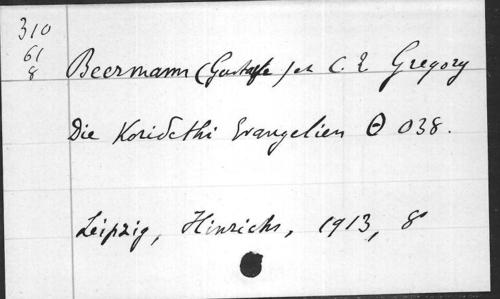 310
61
8
Beermann (Gustave) et C. R. Gregory
Die Koridethi Evangelien Θ 038.
Leipzig, Hinrichs, 1913, 8°